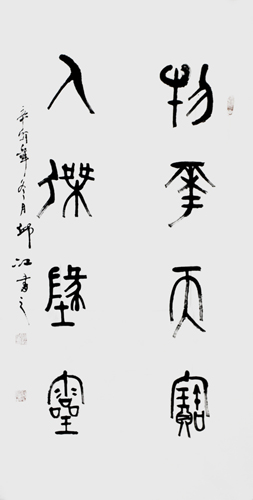 物華天寶
人傑地靈
冬月
江書之